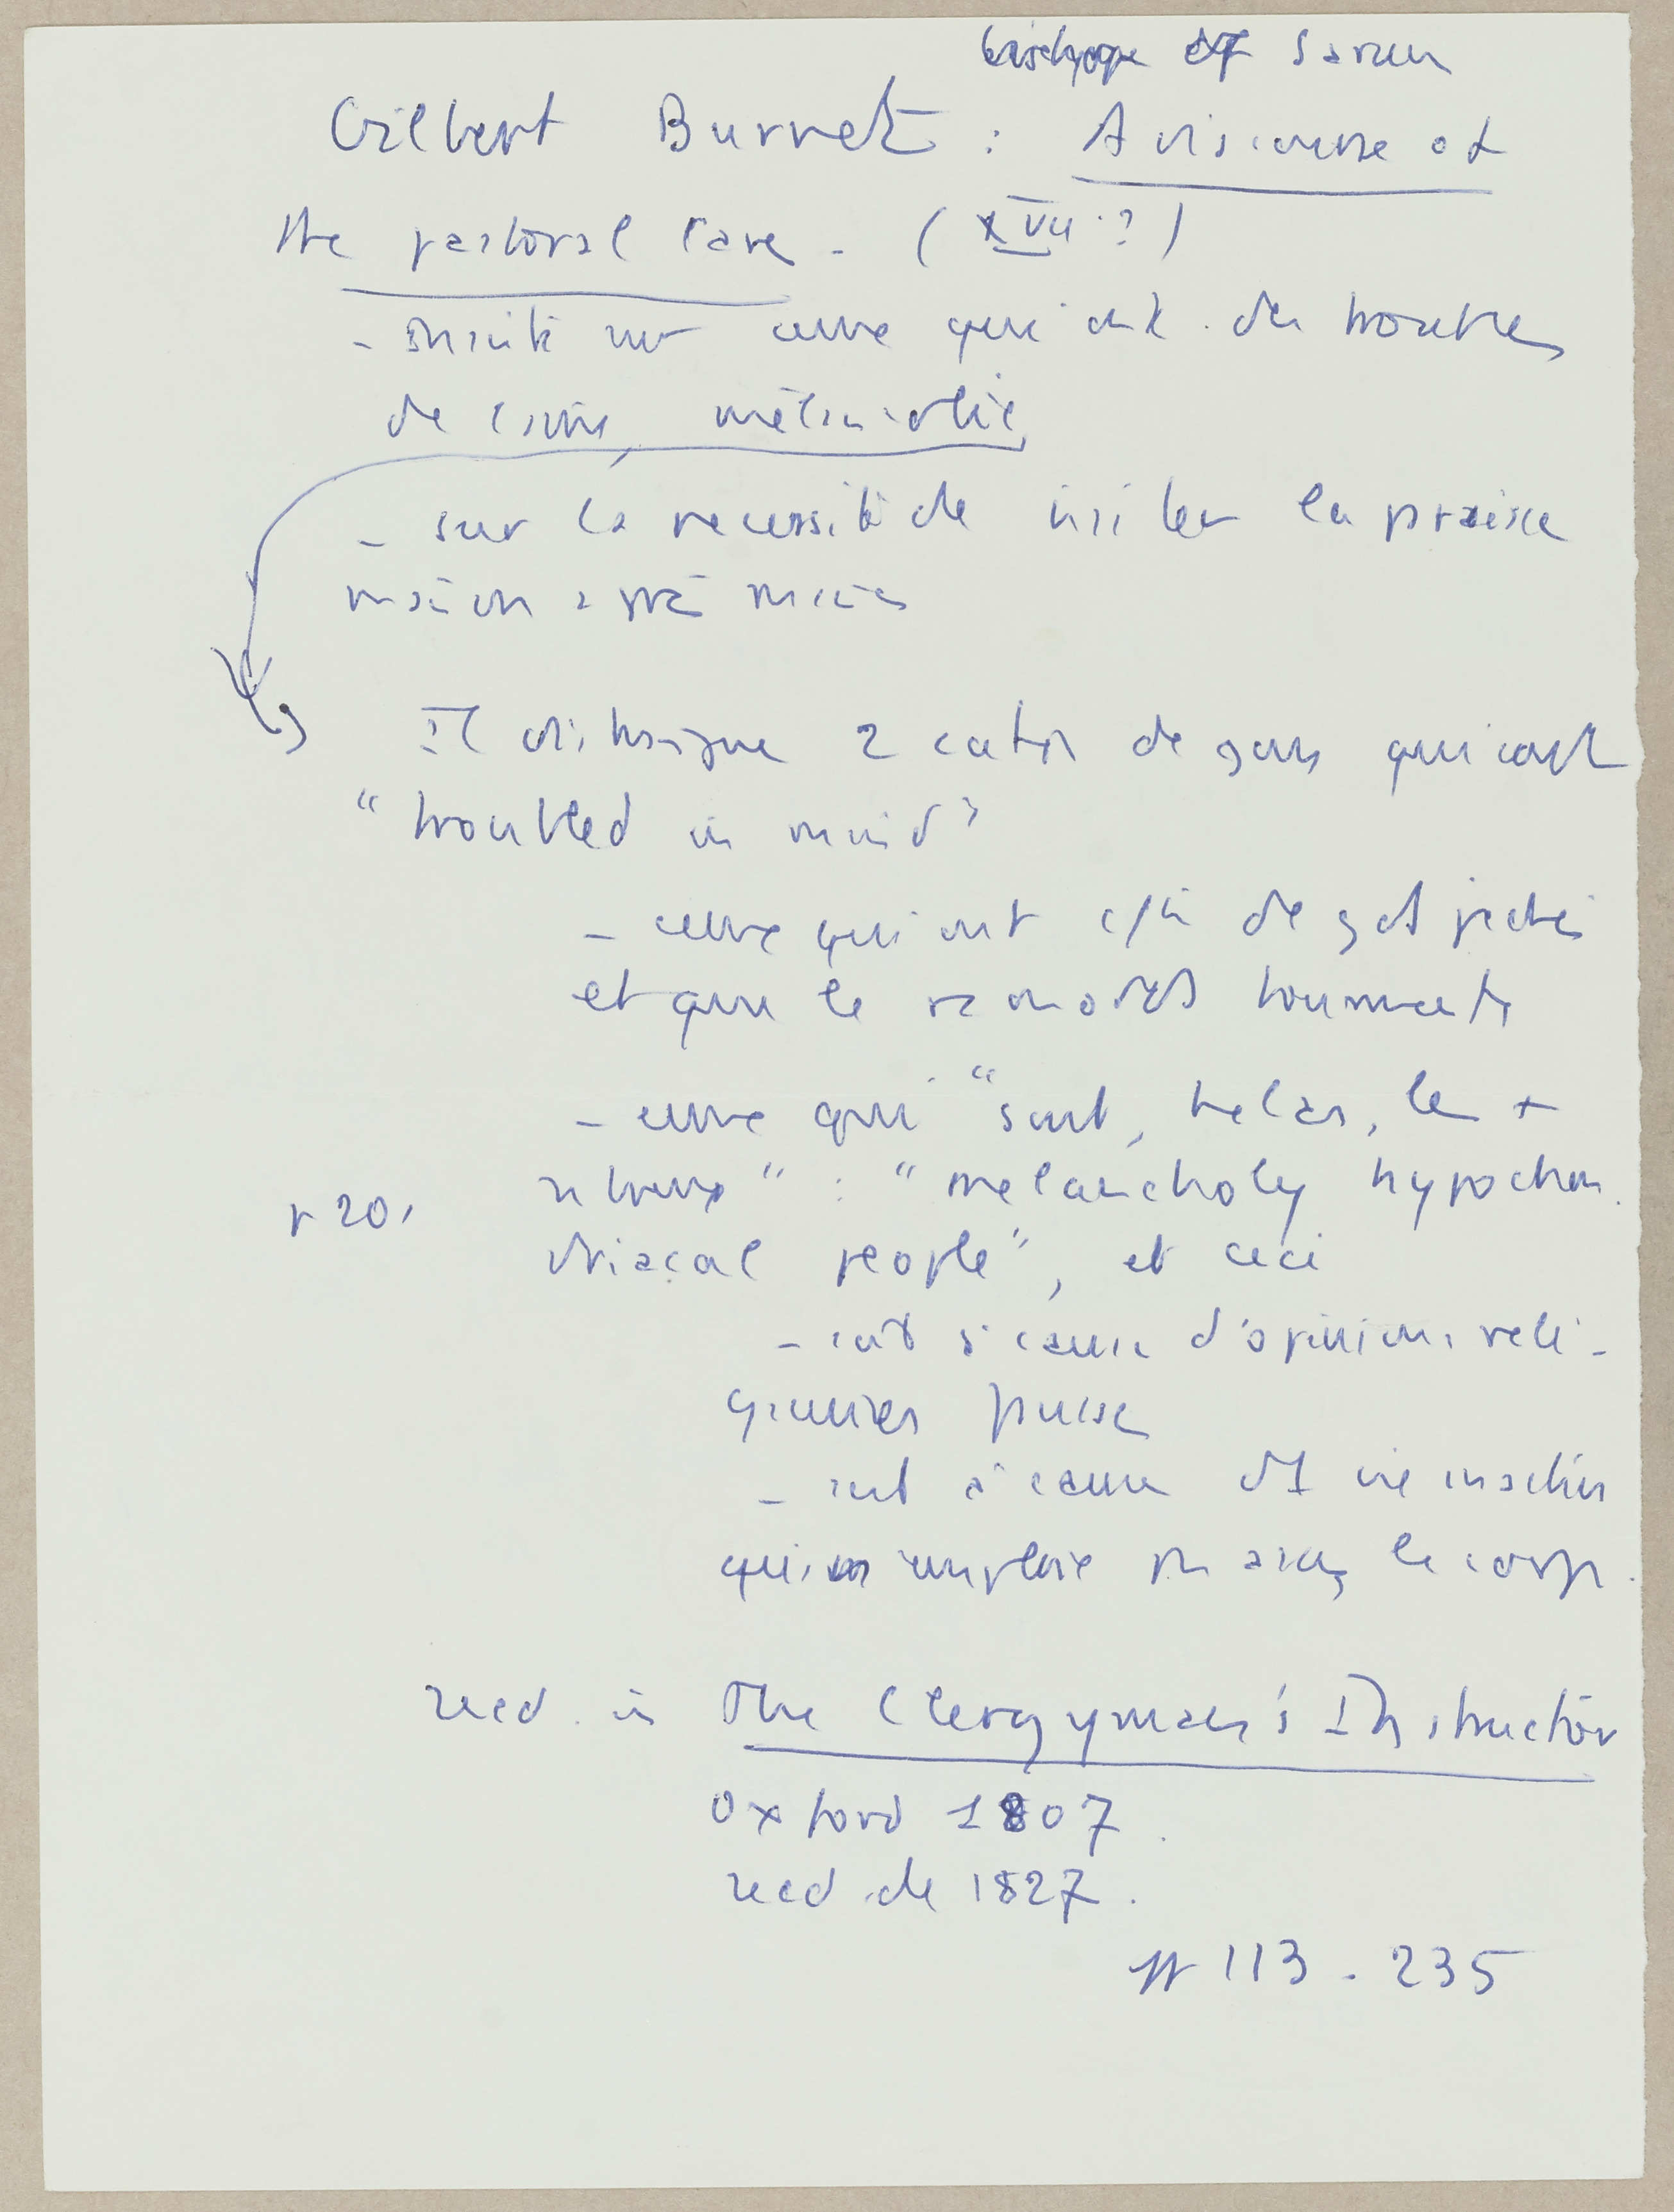 bishope of Sarum
Gilbert Burnet : A discourse of
the pastoral care - ( XVII ? )
- ensuite sur ceux qui ont des troubles
de l'âme, mélancolie,
- sur la nécessité de visiter la paroisse
maison après maison
Il distingue 2 catég de gens qui sont
"troubled in mind"
- ceux qui ont de gds péchés
et que le remords tourmente
- ceux qui "sont, helas, les +
nbreux" : "melancholy hypochon
p 20,
driacal people", et ceci
- soit à cause d'opinions reli-
gieuses fausses
- soit à cause d'1 vie inactive
qui emploie pas assez le corps.
reed. in The Clergyman's Instructor
Oxford 1807.
reed. de 1827.
pp 113 - 235